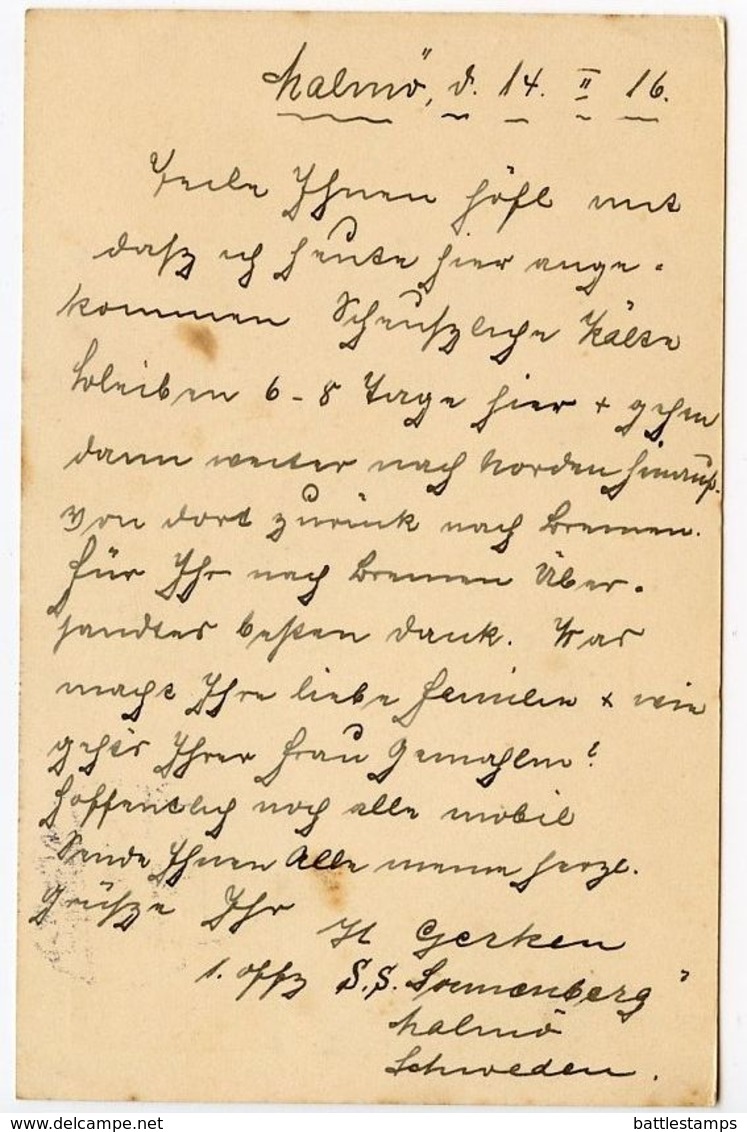 Malmö, d. 14. II 16.
Teile Ihnen höfl mit
dasz ich heute hier ange-
kommen Scheuszliche Kälte
bleiben 6-8 Tage hier + gehen
dann weiter nach Norden hinauf.
von dort zurück nach Bremen.
für Ihr nach Bremen Über-
sandtes besten Dank. Was
macht Ihre liebe Familie + wie
geht's Ihrer Frau Gemahlin?
hoffentlich noch alle mobil
Sende Ihnen Alle meine herzl.
Grüsze Ihr
H Gerken
1. Offz S.S. Sonnenberg"
Malmö
Schweden.
delcampe.net
battlestamps